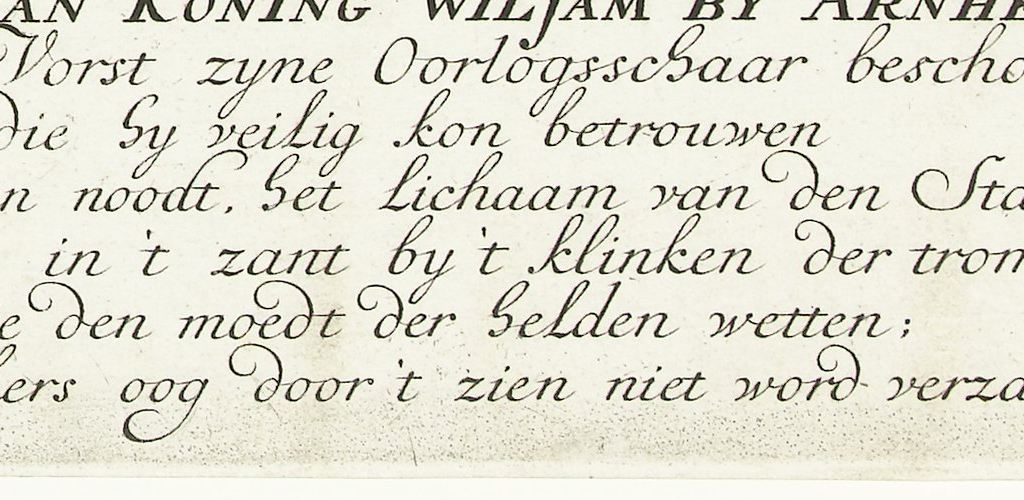 AN KONING WILJAM BY ARNHE
Vorst zyne Oorlogsschaar bescho
die hy veilig kon betrouwen
n noodt, het lichaam van den Sta
in 't zant by 't klinken der trom
e den moedt der helden wetten;
kers oog door 't zien niet word verza